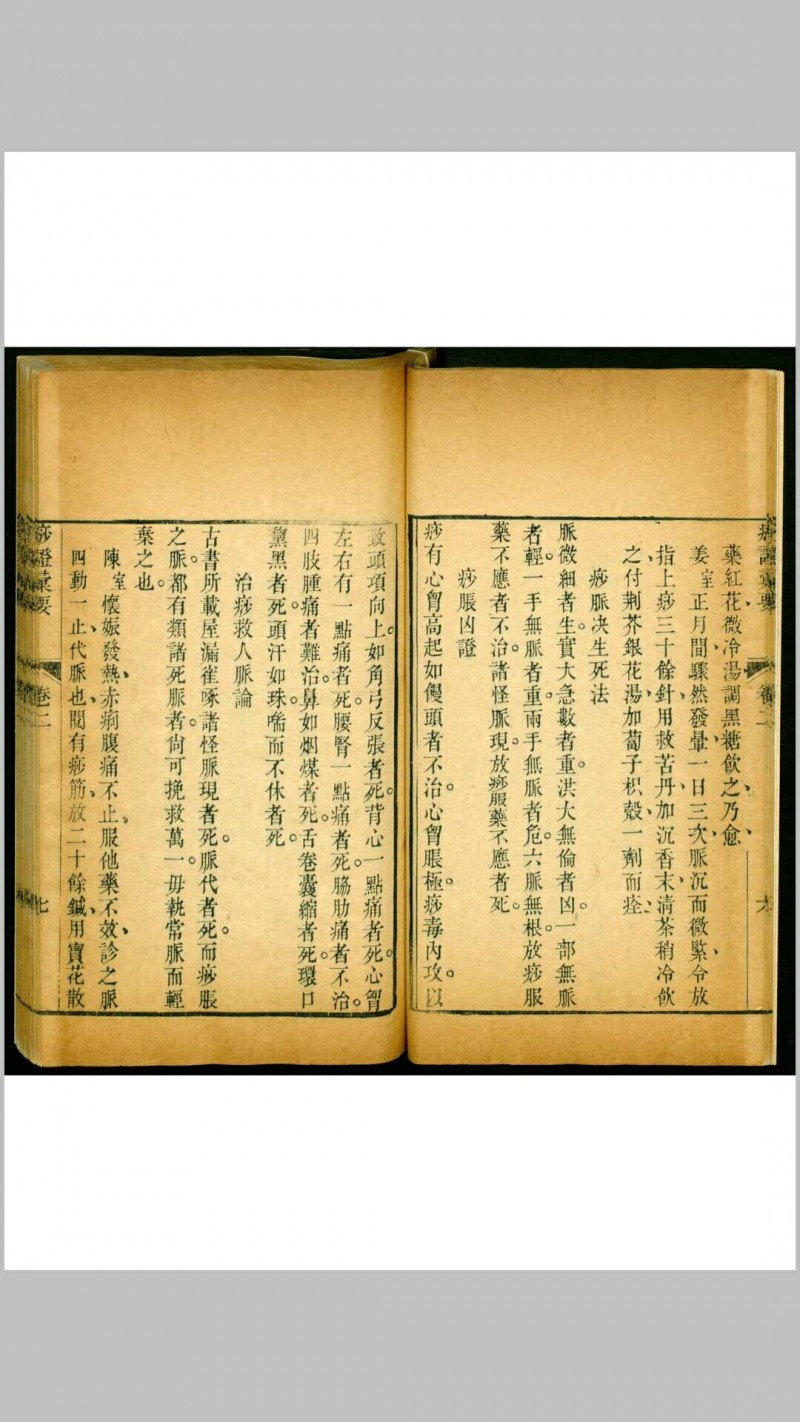 痧證彙要
卷二
藥紅花、微冷湯調黑糖飲之、乃愈、
姜室正月間驟然發暈、一日三次、脈沉而微緊、令放
指上痧三十餘針、用救苦丹、加沉香末、清茶稍冷飲
之、付荆芥銀花湯加蔔子枳殼、一劑而痊、
痧脈决生死法
脈微細者生。實大急數者重。洪大無倫者凶。一部無脈
者輕。一手無脈者重。兩手無脈者危。六脈無根。放痧服
藥不應者不治。諸怪脈現。放痧服藥不應者死。
痧脹凶證
痧有心胷高起如饅頭者不治。心胷脹極。痧毒內攻。以
致頭項向上。如角弓反張者死。背心一點痛者死。心胷
左右有一點痛者死。腰腎一點痛者死。脇肋痛者不治。
四肢腫痛者難治。鼻如烟煤者死。舌卷囊縮者死。環口
黧黑者死。頭汗如珠。喘而不休者死。
治痧救人脈論
古書所載屋漏雀啄諸怪脈現者死。脈代者死。而痧脹
之脈。都有類諸死脈者。尚可挽救萬一。毋執常脈而輕
棄之也。
陳室懷娠發熱、赤痢腹痛不止、服他藥不效、診之脈
四動一止、代脈也、閱有痧筋、放二十餘鍼、用寶花散
痧證彙要
卷二